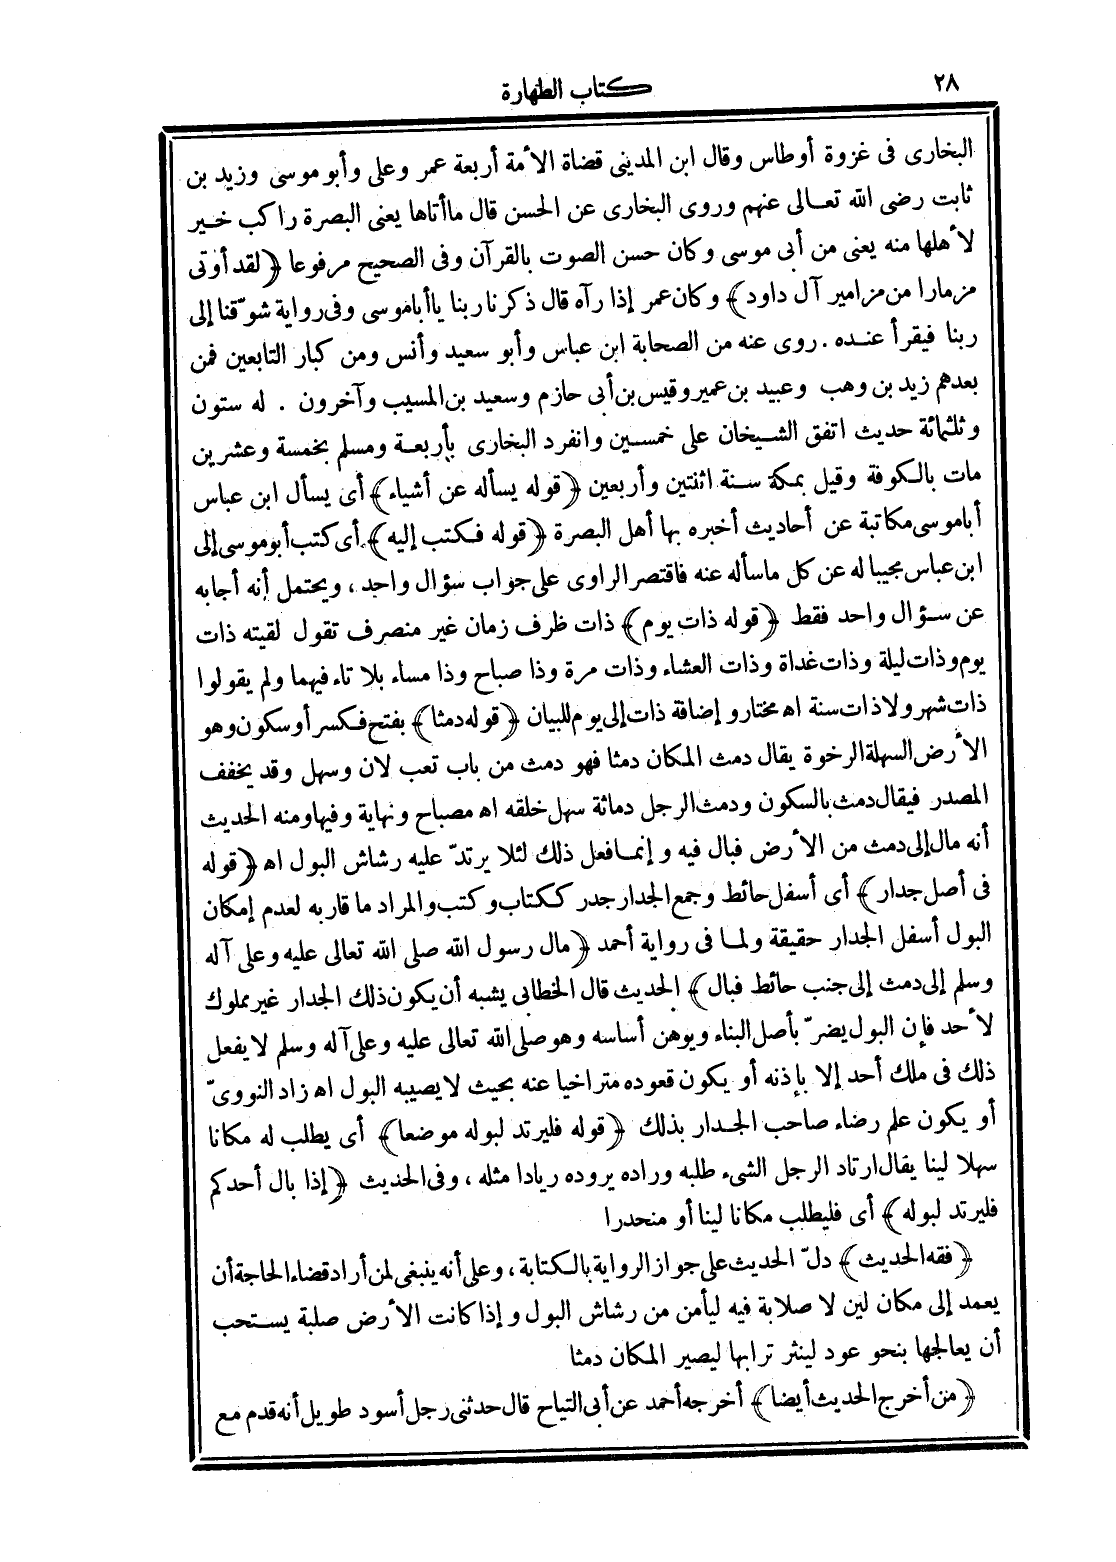 ٢٨
كتاب الطهارة
البخارى فى غزوة أوطاس وقال ابن المدينى قضاة الأمة أربعة عمر وعلى وأبو موسى وزيد بن
ثابت رضى الله تعالى عنهم وروى البخارى عن الحسن قال ما أتاها يعنى البصرة راكب خير
لأهلها منه يعنى من أبى موسى وكان حسن الصوت بالقرآن وفى الصحيح مرفوعا ﴿لقد أوتى
مزمارا من مزامير آل داود﴾ وكان عمر إذا رآه قال ذكرنا ربنا يا أبا موسى وفى رواية شوّقنا إلى
ربنا فيقرأ عنده. روى عنه من الصحابة ابن عباس وأبو سعيد وأنس ومن كبار التابعين فمن
بعدهم زيد بن وهب وعبيد بن عمير وقيس بن أبى حازم وسعيد بن المسيب وآخرون . له ستون
وثلثمائة حديث اتفق الشيخان على خمسين وانفرد البخارى بأربعة ومسلم بخمسة وعشرين
مات بالكوفة وقيل بمكة سنة اثنتين وأربعين ﴿قوله يسأله عن أشياء﴾ أى يسأل ابن عباس
أبا موسى مكاتبة عن أحاديث أخبره بها أهل البصرة ﴿قوله فكتب إليه﴾ أى كتب أبو موسى إلى
ابن عباس مجيبا له عن كل ما سأله عنه فاقتصر الراوى على جواب سؤال واحد، ويحتمل أنه أجابه
عن سؤال واحد فقط ﴿قوله ذات يوم﴾ ذات ظرف زمان غير منصرف تقول لقيته ذات
يوم وذات ليلة وذات غداة وذات العشاء وذات مرة وذا صباح وذا مساء بلا تاء فيهما ولم يقولوا
ذات شهر ولا ذات سنة اه مختار وإضافة ذات إلى يوم للبيان ﴿قوله دمثا﴾ بفتح فكسر أو سكون وهو
الأرض السهلة الرخوة يقال دمث المكان دمثا فهو دمث من باب تعب لان وسهل وقد يخفف
المصدر فيقال دمث بالسكون ودمث الرجل دماثة سهل خلقه اه مصباح ونهاية وفيها ومنه الحديث
أنه مال إلى دمث من الأرض فبال فيه وإنما فعل ذلك لئلا يرتدّ عليه رشاش البول اه ﴿قوله
فى أصل جدار﴾ أى أسفل حائط وجمع الجدار جدر ككتاب وكتب والمراد ما قاربه لعدم إمكان
البول أسفل الجدار حقيقة ولما فى رواية أحمد ﴿مال رسول الله صلى الله تعالى عليه وعلى آله
وسلم إلى دمث إلى جنب حائط فبال﴾ الحديث قال الخطابى يشبه أن يكون ذلك الجدار غير مملوك
لأحد فإن البول يضرّ بأصل البناء ويوهن أساسه وهو صلى الله تعالى عليه وعلى آله وسلم لا يفعل
ذلك فى ملك أحد إلا بإذنه أو يكون قعوده متراخيا عنه بحيث لا يصيبه البول اه زاد النووىّ
أو يكون علم رضاء صاحب الجدار بذلك ﴿قوله فليرتد لبوله موضعا﴾ أى يطلب له مكانا
سهلا لينا يقال ارتاد الرجل الشىء طلبه وراده يروده ريادا مثله، وفى الحديث ﴿إذا بال أحدكم
فليرتد لبوله﴾ أى فليطلب مكانا لينا أو منحدرا
﴿فقه الحديث﴾ دلّ الحديث على جواز الرواية بالكتابة، وعلى أنه ينبغى لمن أراد قضاء الحاجة أن
يعمد إلى مكان لين لا صلابة فيه ليأمن من رشاش البول وإذا كانت الأرض صلبة يستحب
أن يعالجها بنحو عود لينثر ترابها ليصير المكان دمثا
﴿من أخرج الحديث أيضا﴾ أخرجه أحمد عن أبى التياح قال حدثنى رجل أسود طويل أنه قدم مع